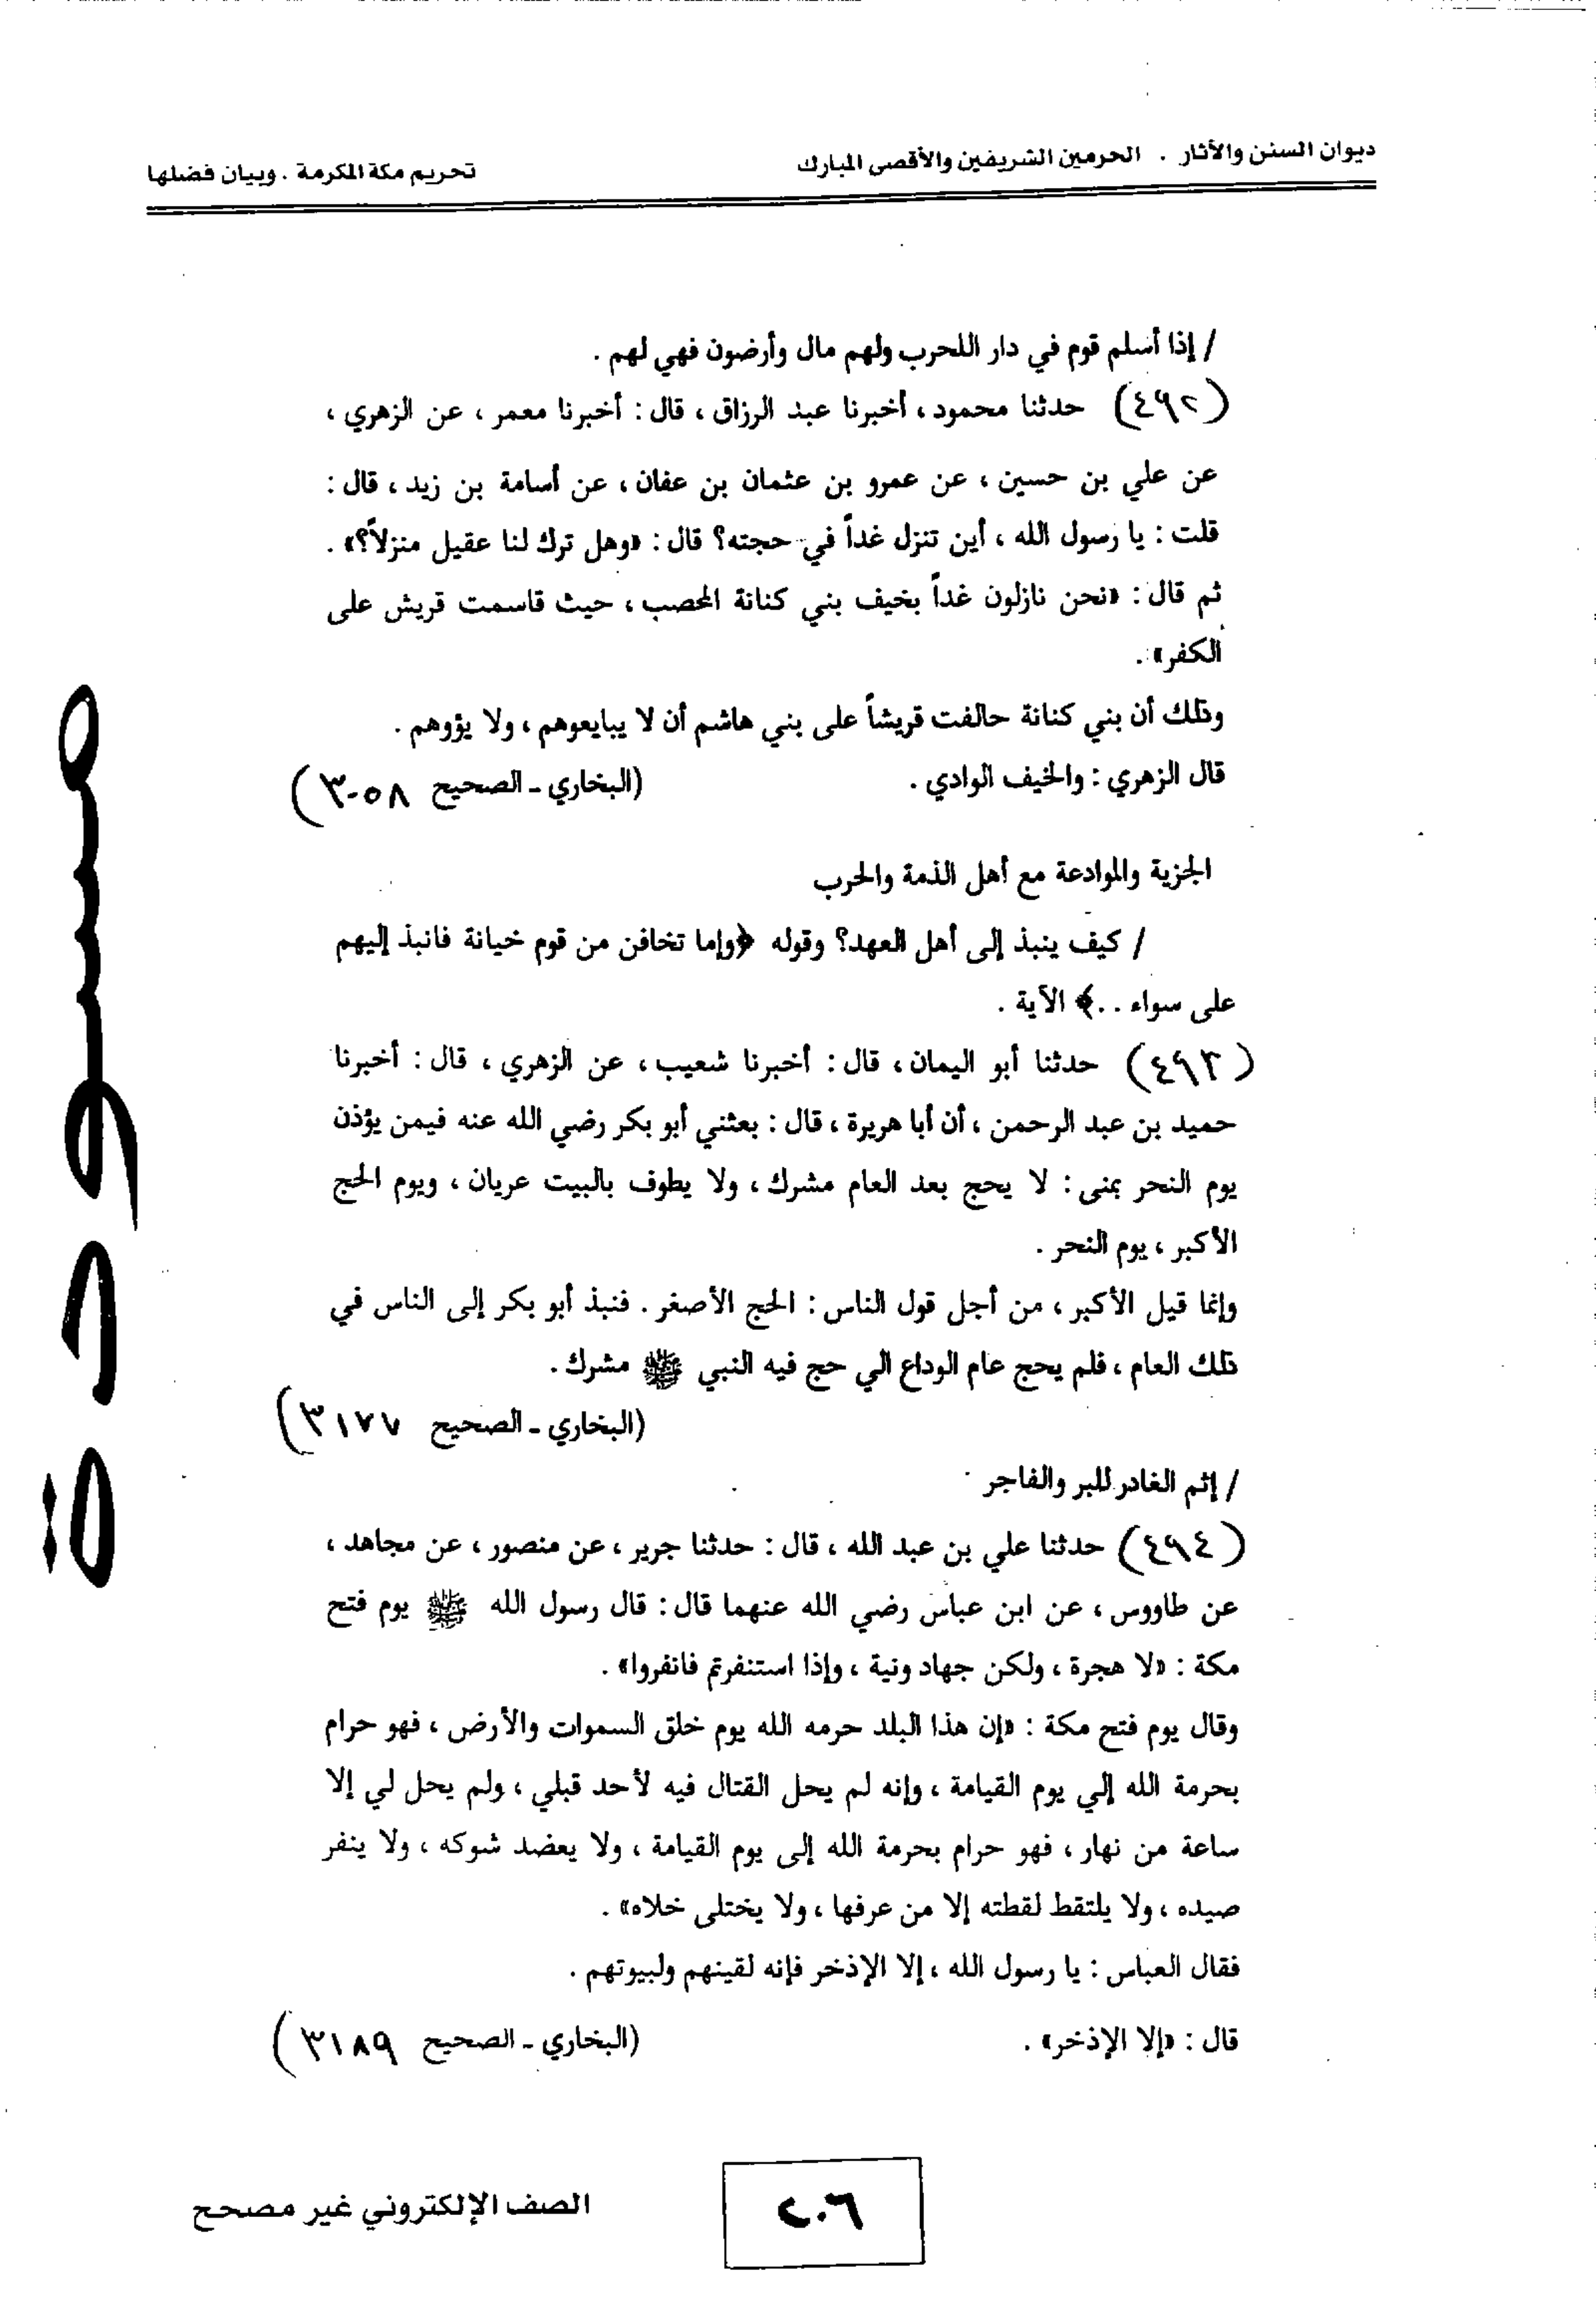 ديوان السنن والآثار . الحرمين الشريفين والأقصى المبارك
تحريم مكة المكرمة . وبيان فضلها
/ إذا أسلم قوم في دار اللحرب ولهم مال وأرضون فهي لهم .
(٤٩٢) حدثنا محمود ، أخبرنا عبد الرزاق ، قال : أخبرنا معمر ، عن الزهري ،
عن علي بن حسين ، عن عمرو بن عثمان بن عفان ، عن أسامة بن زيد ، قال :
قلت : يا رسول الله ، أين تنزل غداً في حجته؟ قال : «وهل ترك لنا عقيل منزلاً؟» .
ثم قال : «نحن نازلون غداً بخيف بني كنانة المحصب ، حيث قاسمت قريش على
الكفر» .
وذلك أن بني كنانة حالفت قريشاً على بني هاشم أن لا يبايعوهم ، ولا يؤوهم .
قال الزهري : والخيف الوادي .
(البخاري ـ الصحيح ٣٠٥٨)
الجزية والموادعة مع أهل الذمة والحرب
/ كيف ينبذ إلى أهل العهد؟ وقوله ﴿وإما تخافن من قوم خيانة فانبذ إليهم
على سواء ..﴾ الآية .
(٤٩٣) حدثنا أبو اليمان ، قال : أخبرنا شعيب ، عن الزهري ، قال : أخبرنا
حميد بن عبد الرحمن ، أن أبا هريرة ، قال : بعثني أبو بكر رضي الله عنه فيمن يؤذن
يوم النحر بمنى : لا يحج بعد العام مشرك ، ولا يطوف بالبيت عريان ، ويوم الحج
الأكبر ، يوم النحر .
وإنما قيل الأكبر ، من أجل قول الناس : الحج الأصغر . فنبذ أبو بكر إلى الناس في
ذلك العام ، فلم يحج عام الوداع الي حج فيه النبي ﷺ مشرك .
(البخاري ـ الصحيح ٣١٧٧)
/ إثم الغادر للبر والفاجر
(٤٩٤) حدثنا علي بن عبد الله ، قال : حدثنا جرير ، عن منصور ، عن مجاهد ،
عن طاووس ، عن ابن عباس رضي الله عنهما قال : قال رسول الله ﷺ يوم فتح
مكة : «لا هجرة ، ولكن جهاد ونية ، وإذا استنفرتم فانفروا» .
وقال يوم فتح مكة : «إن هذا البلد حرمه الله يوم خلق السموات والأرض ، فهو حرام
بحرمة الله إلي يوم القيامة ، وإنه لم يحل القتال فيه لأحد قبلي ، ولم يحل لي إلا
ساعة من نهار ، فهو حرام بحرمة الله إلى يوم القيامة ، ولا يعضد شوكه ، ولا ينفر
صيده ، ولا يلتقط لقطته إلا من عرفها ، ولا يختلى خلاه» .
فقال العباس : يا رسول الله ، إلا الإذخر فإنه لقينهم ولبيوتهم .
قال : «إلا الإذخر» .
(البخاري ـ الصحيح ٣١٨٩)
مسودة
٢٠٦
الصف الإلكتروني غير مصحح